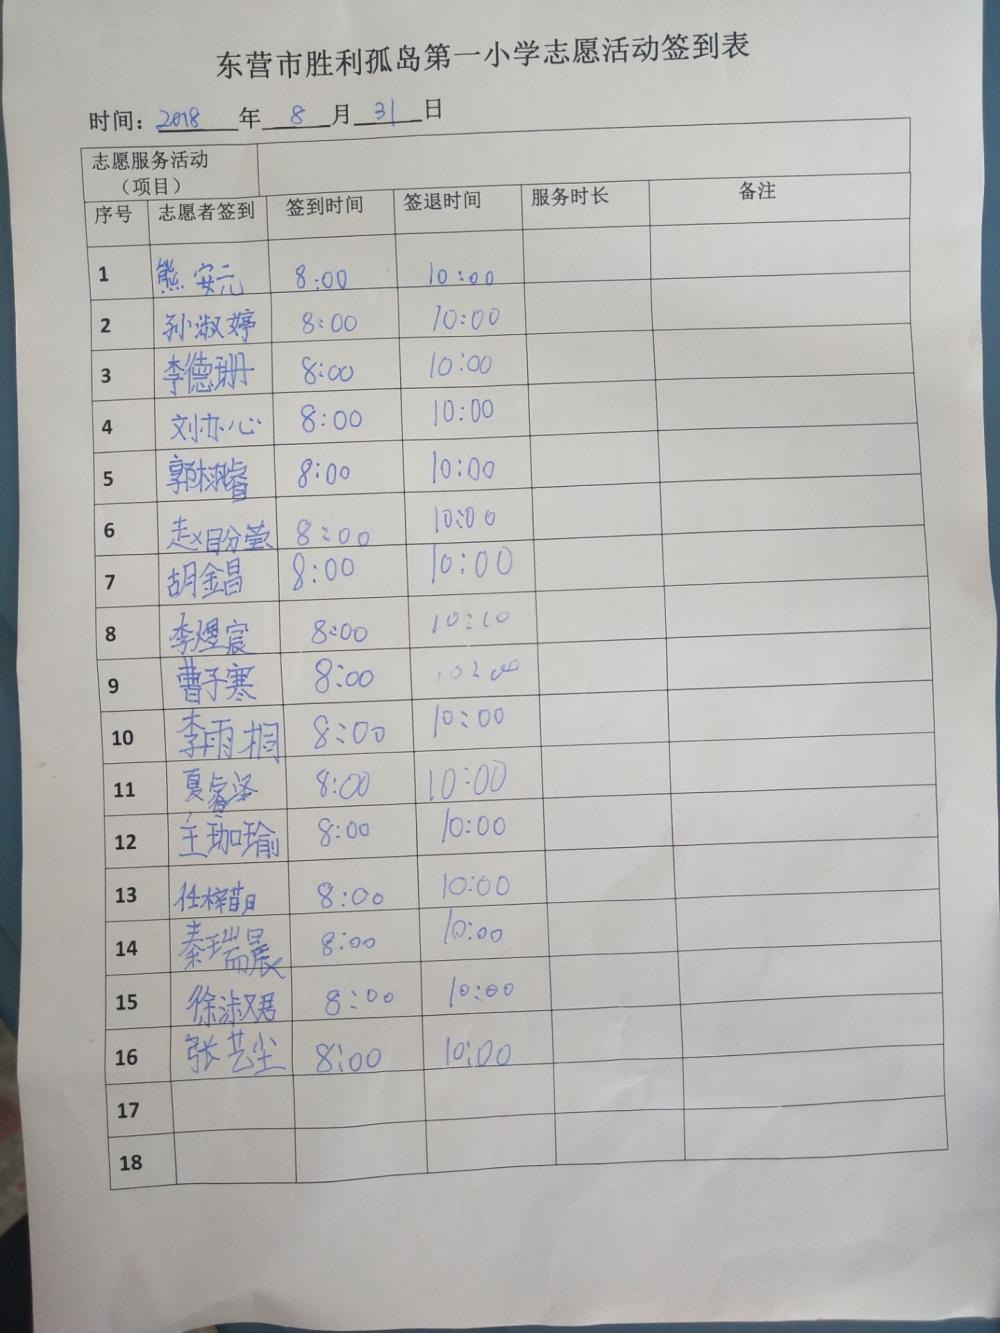 东营市胜利孤岛第一小学志愿活动签到表
时间：2018年8月31日
志愿服务活动
（项目）
序号 志愿者签到 签到时间 签退时间 服务时长 备注
1 熊安元 8:00 10:00
2 孙淑婷 8:00 10:00
3 李德珊 8:00 10:00
4 刘亦心 8:00 10:00
5 郭桃睿 8:00 10:00
6 赵盼莹 8:00 10:00
7 胡金昌 8:00 10:00
8 李煜宸 8:00 10:10
9 曹子寒 8:00
10 李雨桐 8:00 10:00
11 夏睿泽 8:00 10:00
12 王珈瑜 8:00 10:00
13 任梓萌 8:00 10:00
14 秦瑞晨 8:00 10:00
15 徐淑君 8:00 10:00
16 张艺尘 8:00 10:00
17
18